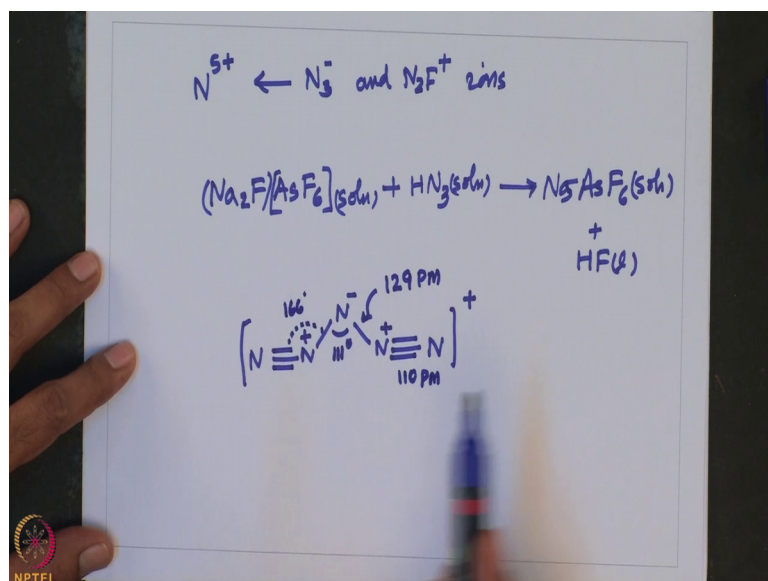 N⁵⁺ ← N₃⁻ and N₂F⁺ ions
(Na₂F)[AsF₆](soln) + HN₃(soln) → N5AsF₆(soln)
+
HF(l)
[N≡N⁺ N⁻ N⁺≡N]⁺
166°
111°
129 pm
110 pm
NPTEL